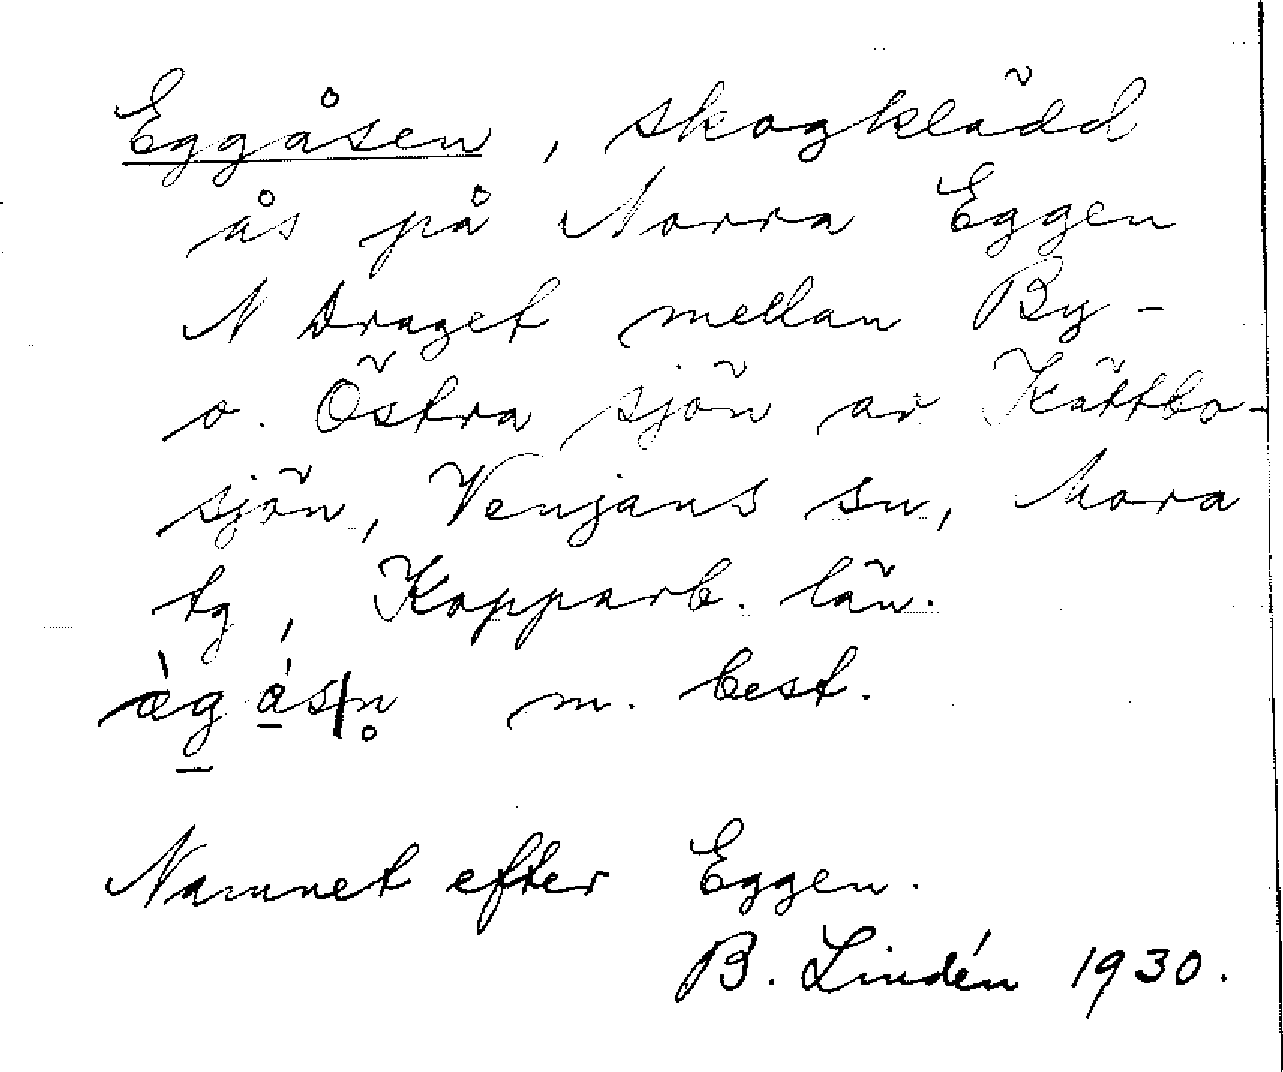 Eggåsen, skogklädd
ås på Norra Eggen
N Draget mellan By-
o. Östra sjön av Kättbo-
sjön, Venjans sn, Mora
tg, Kopparb. län.
m. best.
Namnet efter Eggen.
B. Lindén 1930.